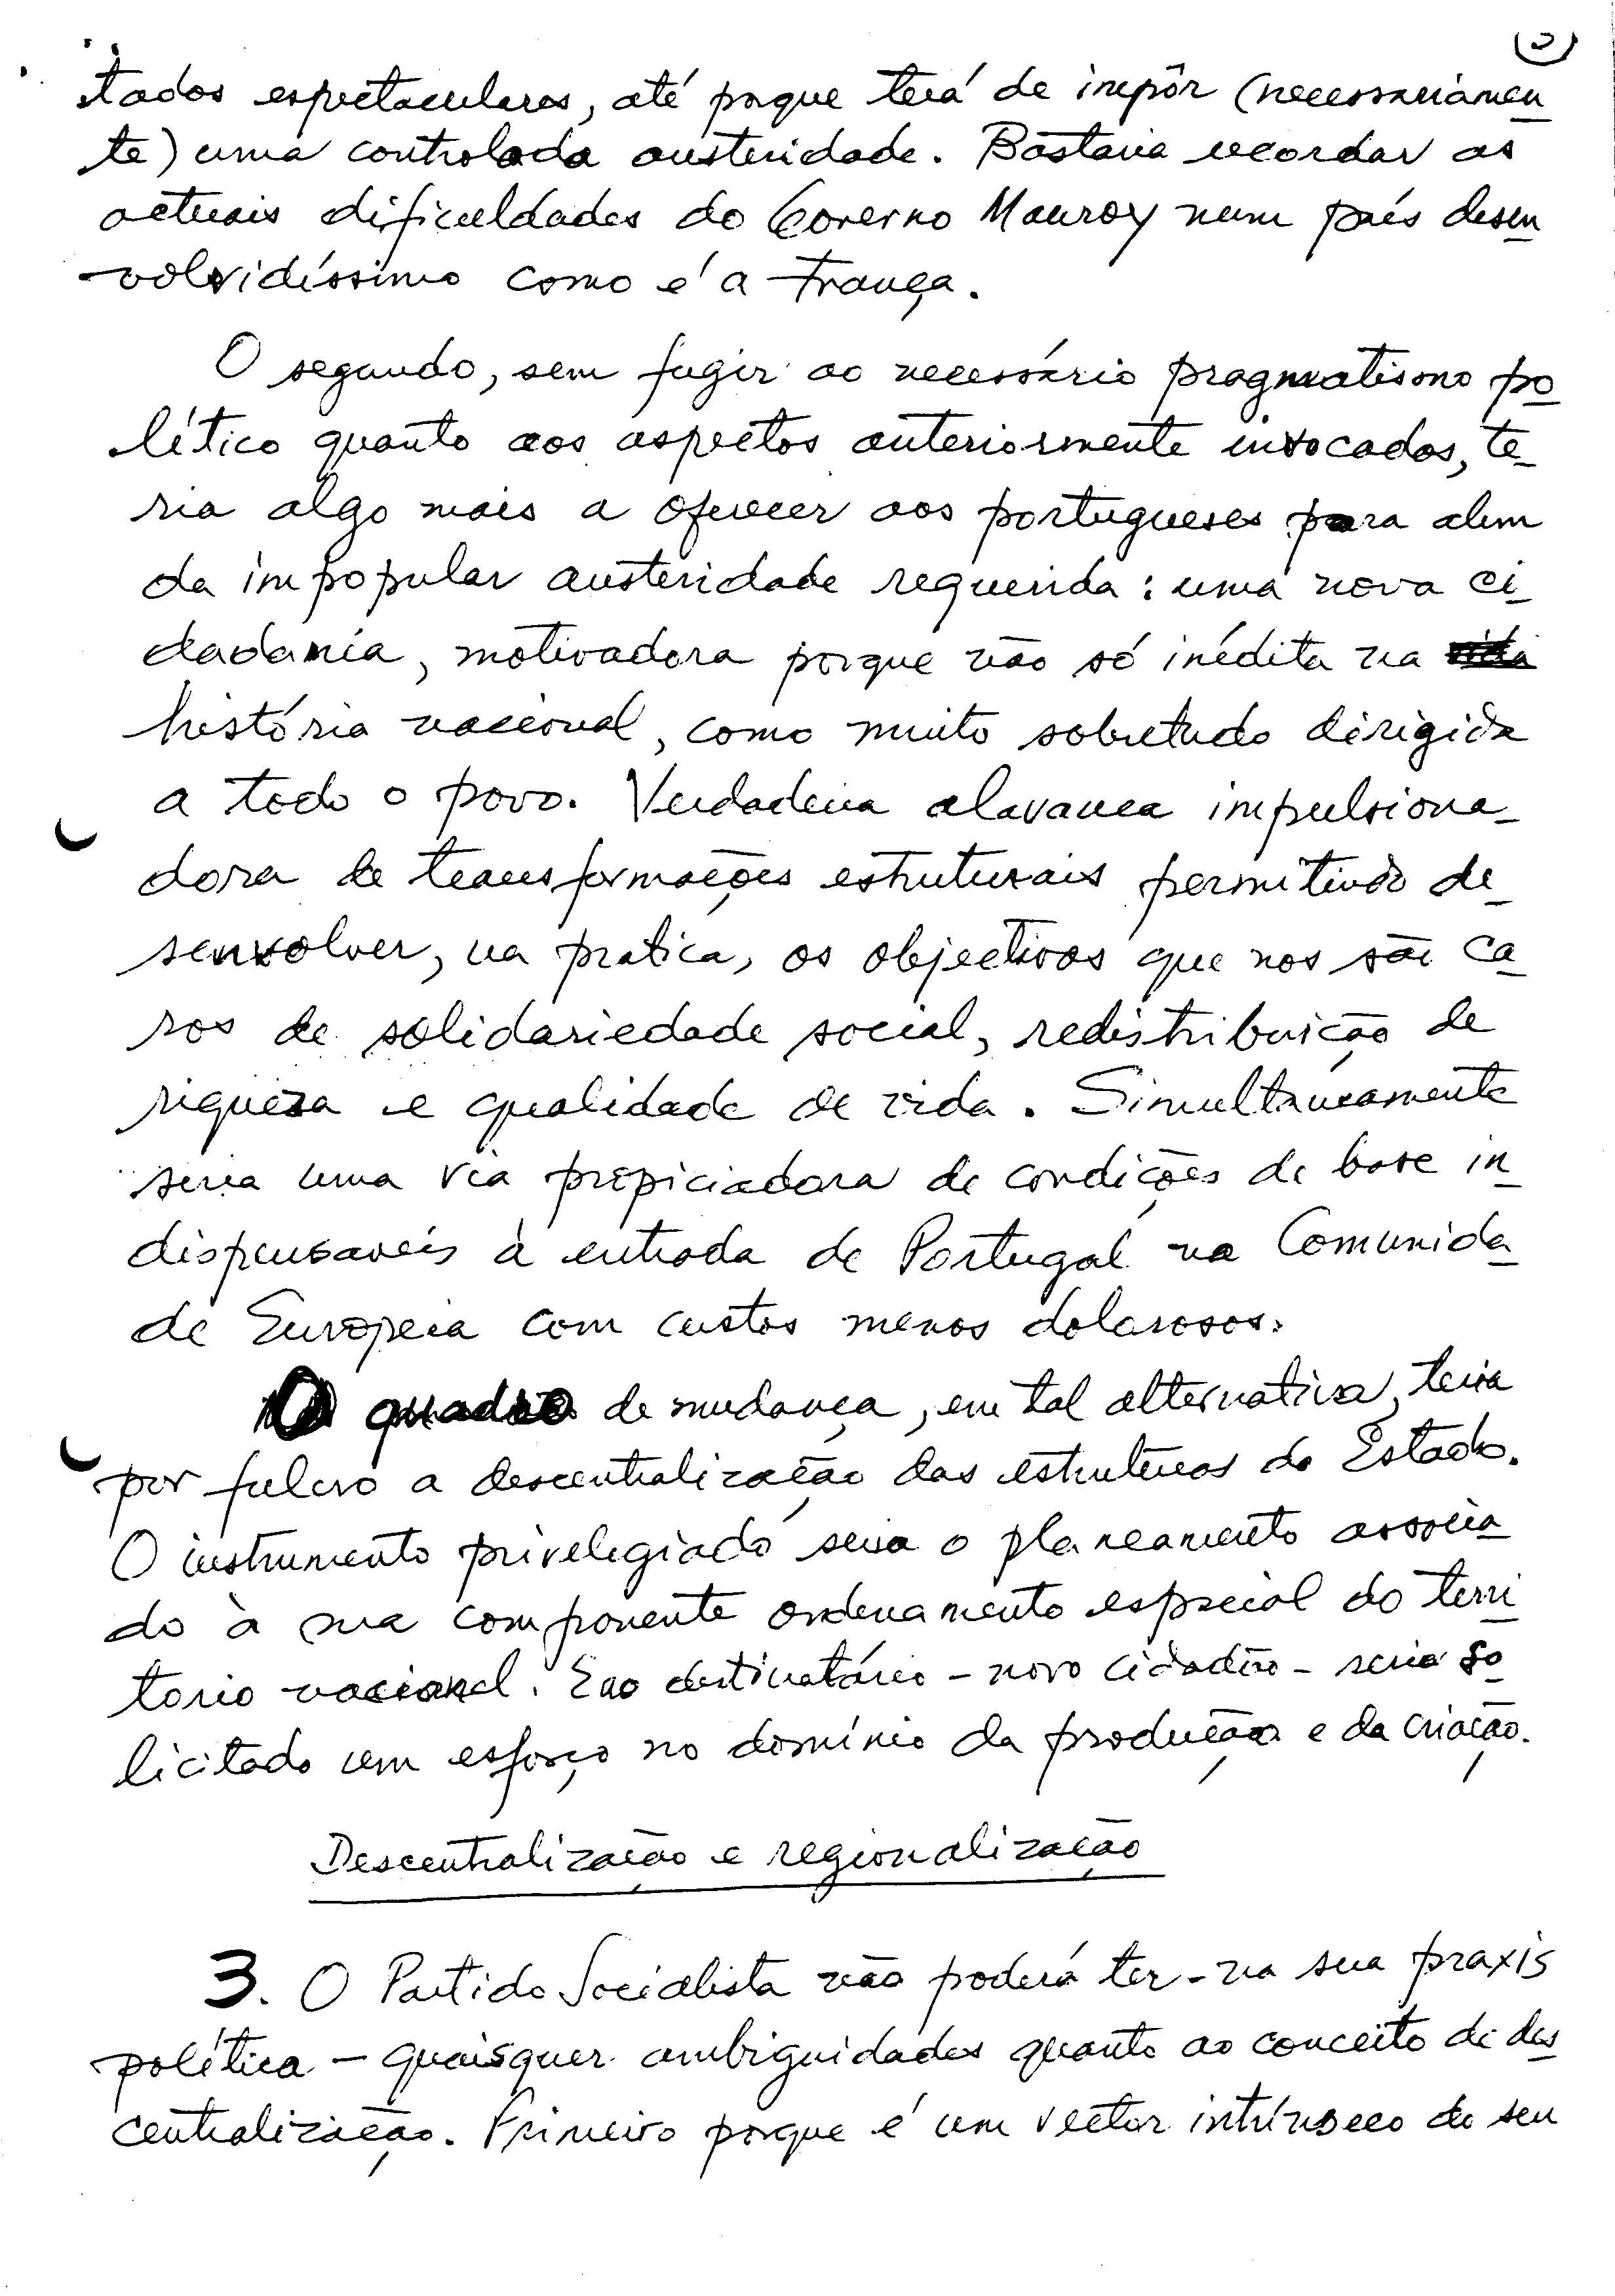 tados espectaculares, até porque terá de impôr (necessariamen
te) uma controlada austeridade. Bastaria recordar as
actuais dificuldades do Governo Mauroy num país desen
volvidíssimo como é a França.
O segundo, sem fugir ao necessário pragmatismo po
lítico quanto aos aspectos anteriormente invocados, te_
ria algo mais a oferecer aos portugueses para alem
da impopular austeridade requerida: uma nova ci
dadania, motivadora porque não só inédita na vida
história nacional, como muito sobretudo dirigida
a todo o povo. Verdadeira alavanca impulsiona_
dora de transformações estruturais permitindo de_
senvolver, na pratica, os objectivos que nos são ca
ros de solidariedade social, redistribuição de
riqueza e qualidade de vida. Simultaneamente
seria uma via propiciadora de condições de base in
dispensaveis à entrada de Portugal na Comunida
de Europeia com custos menos dolorosos.
O quadro de mudança, em tal alternativa, teria
por fulcro a descentralização das estruturas do Estado.
O instrumento privelegiado seria o planeamento associa
do à sua componente ordenamento espacial do terri
torio nacional. E ao destinatário - novo cidadão - seria so
licitado um esforço no domínio da produção e da criação.
Descentralização e regionalização
3. O Partido Socialista não poderá ter - na sua praxis
política - quaisquer ambiguidades quanto ao conceito de des
centralização. Primeiro porque é um vector intrínseco do seu